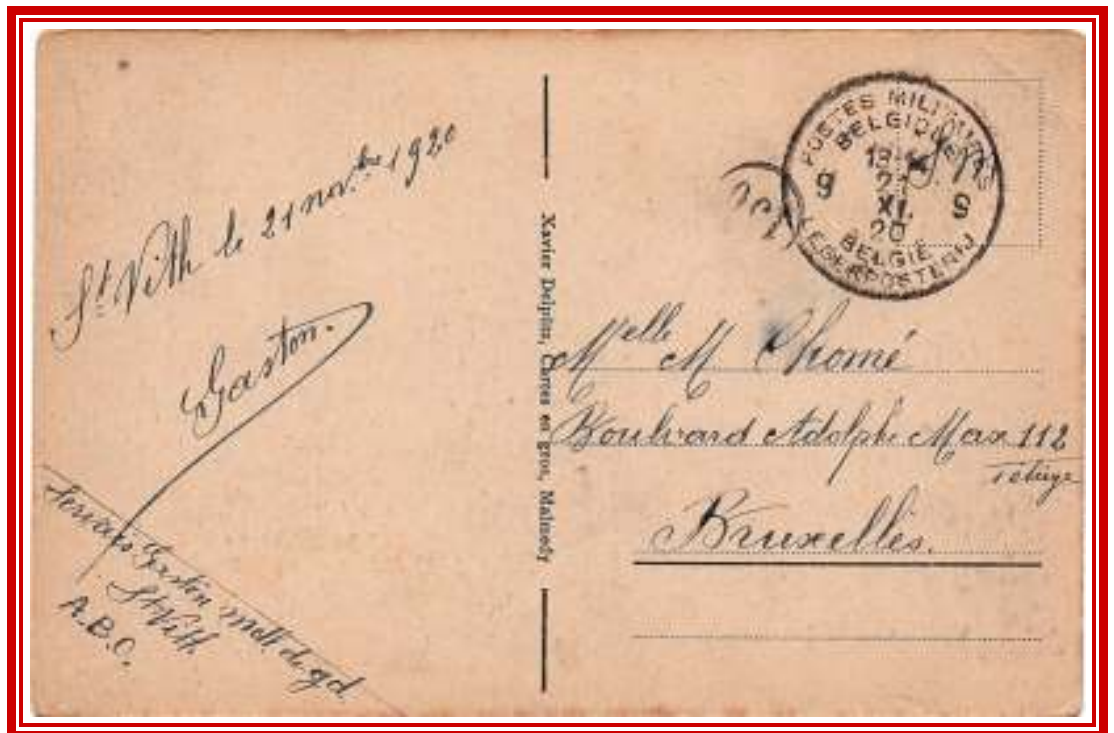 St Vith le 21 nov.bre 1920
Gaston.
Gaston
St Vith
A.B.O.
Xavier Delputz, Cartes en gros, Malmedy
POSTES MILITAIRES
BELGIQUE
9 9
XI
20
BELGIË
LEGERPOSTERIJ
Melle M Thomé
Boulevard Adolphe Max 112
1 étage
Bruxelles.